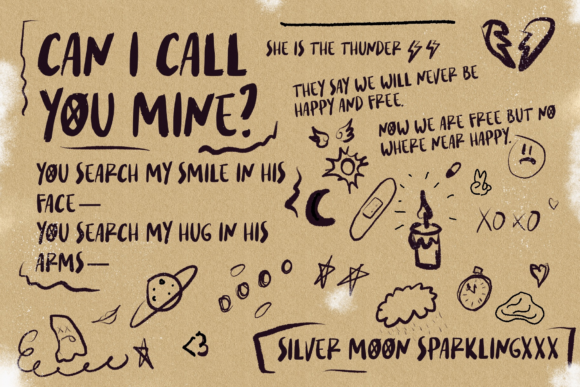 CAN I CALL
YOU MINE?
SHE IS THE THUNDER
THEY SAY WE WILL NEVER BE
HAPPY AND FREE.
NOW WE ARE FREE BUT NO
WHERE NEAR HAPPY.
YOU SEARCH MY SMILE IN HIS
FACE—
YOU SEARCH MY HUG IN HIS
ARMS—
XO XO
<3
SILVER MOON SPARKLINGXXX